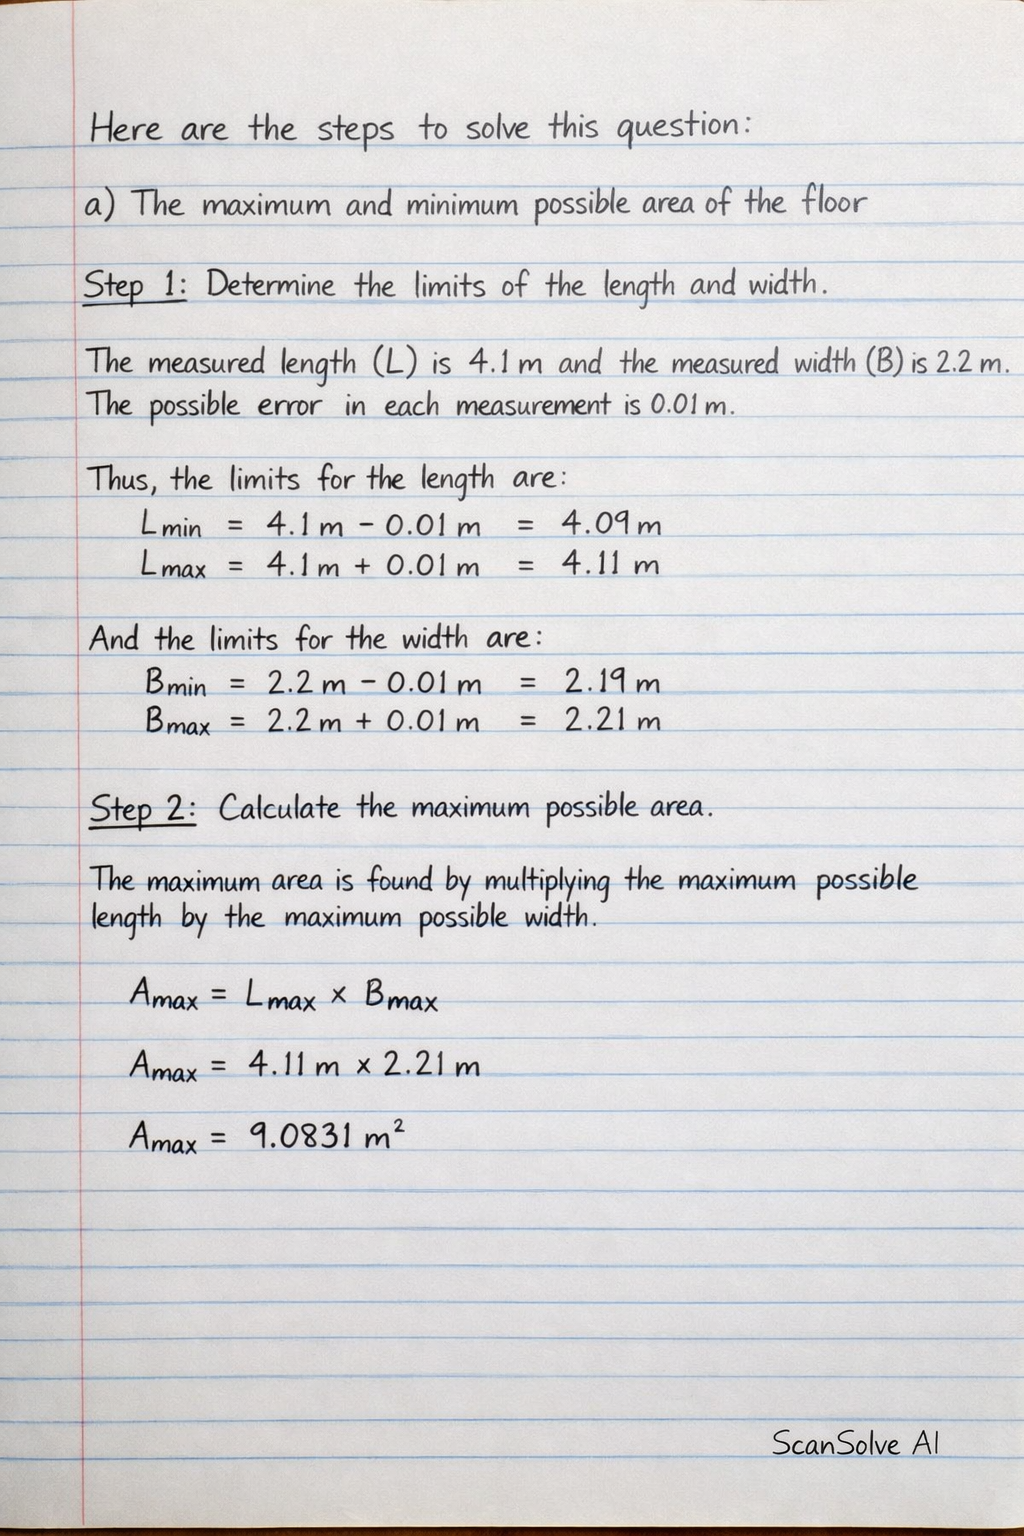 Here are the steps to solve this question:
a) The maximum and minimum possible area of the floor
Step 1: Determine the limits of the length and width.
The measured length (L) is 4.1 m and the measured width (B) is 2.2 m.
The possible error in each measurement is 0.01 m.
Thus, the limits for the length are:
Lmin = 4.1 m - 0.01 m = 4.09 m
Lmax = 4.1 m + 0.01 m = 4.11 m
And the limits for the width are:
Bmin = 2.2 m - 0.01 m = 2.19 m
Bmax = 2.2 m + 0.01 m = 2.21 m
Step 2: Calculate the maximum possible area.
The maximum area is found by multiplying the maximum possible
length by the maximum possible width.
Amax = Lmax × Bmax
Amax = 4.11 m × 2.21 m
Amax = 9.0831 m²
ScanSolve AI